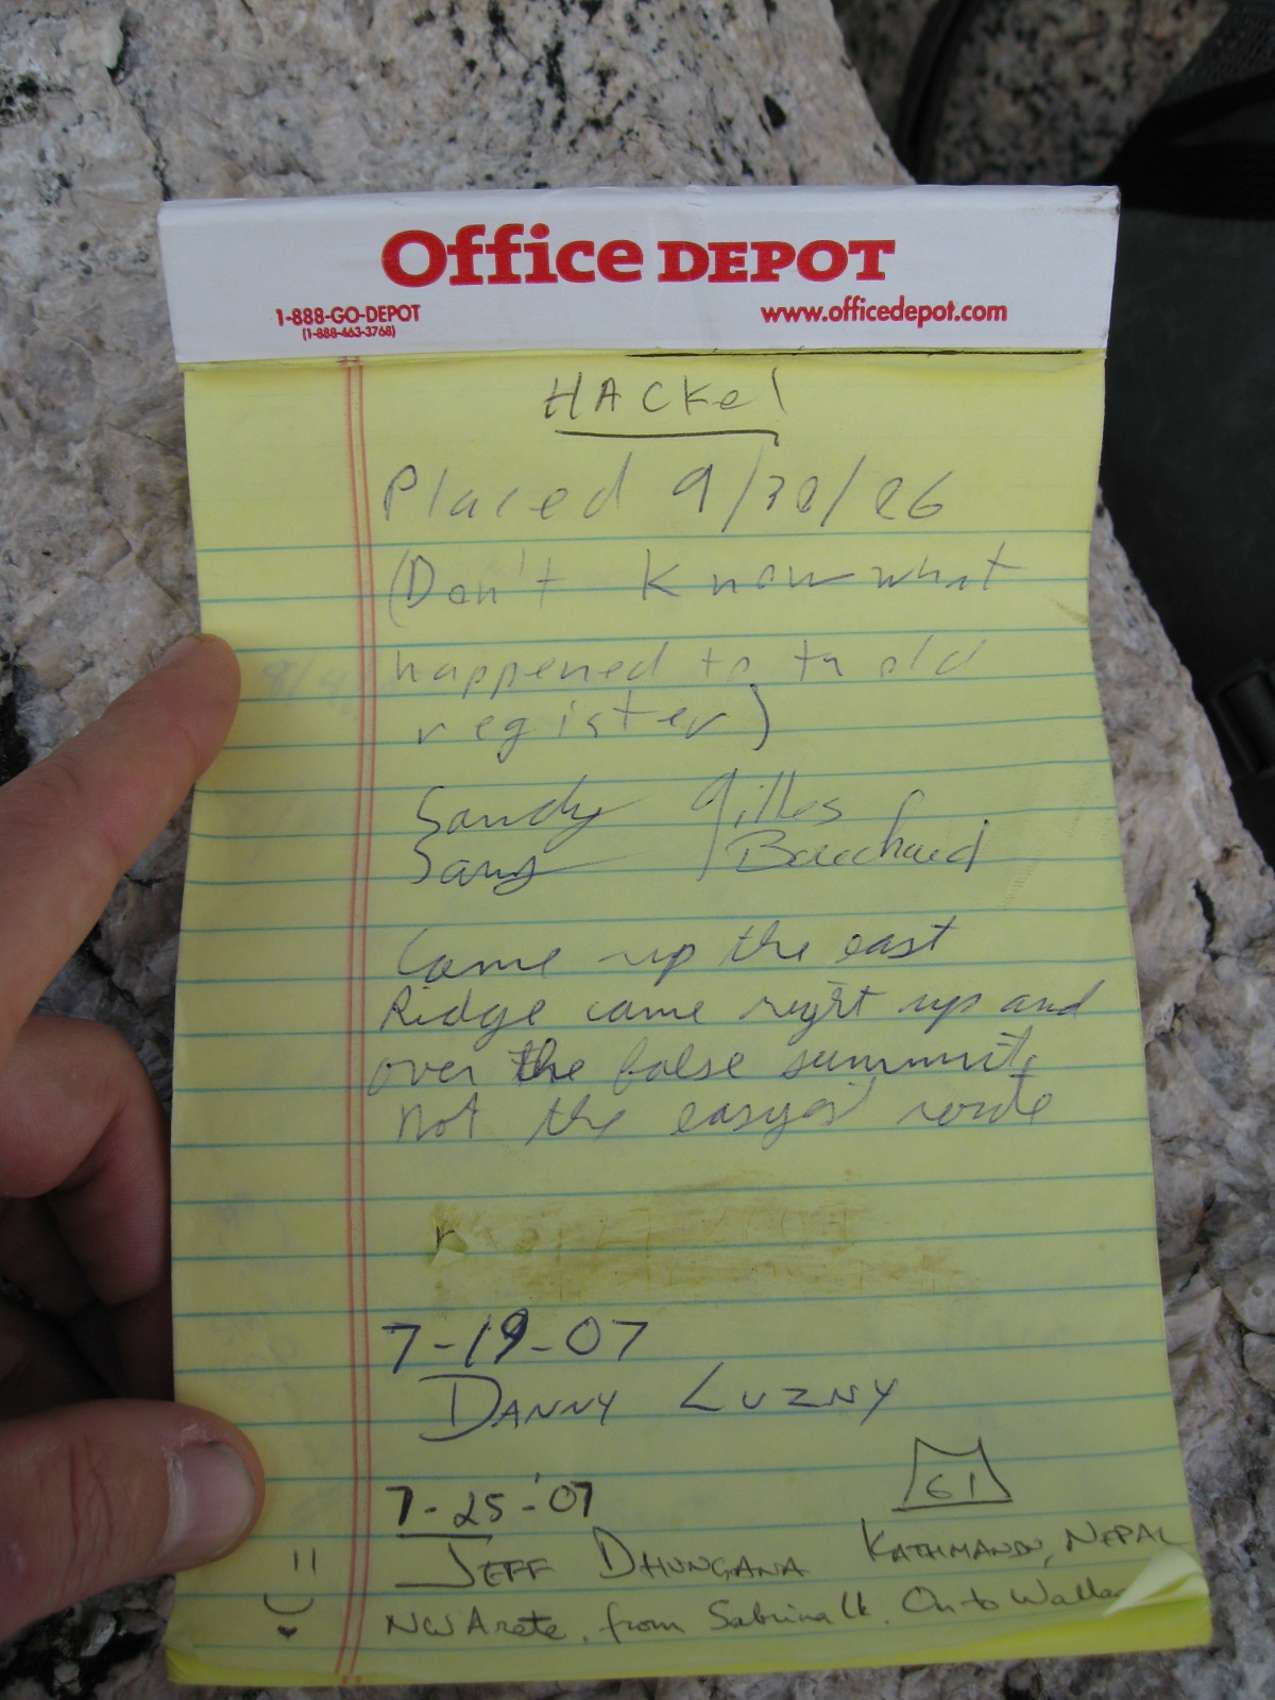 Office DEPOT
1-888-GO-DEPOT
(1-888-463-3768)
www.officedepot.com
HACKel
Placed 9/30/06
(Don't know what
happened to th old
register)
Sandy Gilles
Sang Bouchard
Came up the east
Ridge came right up and
over the false summit
Not the easyest route
7-19-07
DANNY LUZNY
7-25-'07
61
JEFF DHUNGANA KATHMANDU, NEPAL
NW Arete, from Sabrina Lk. On to